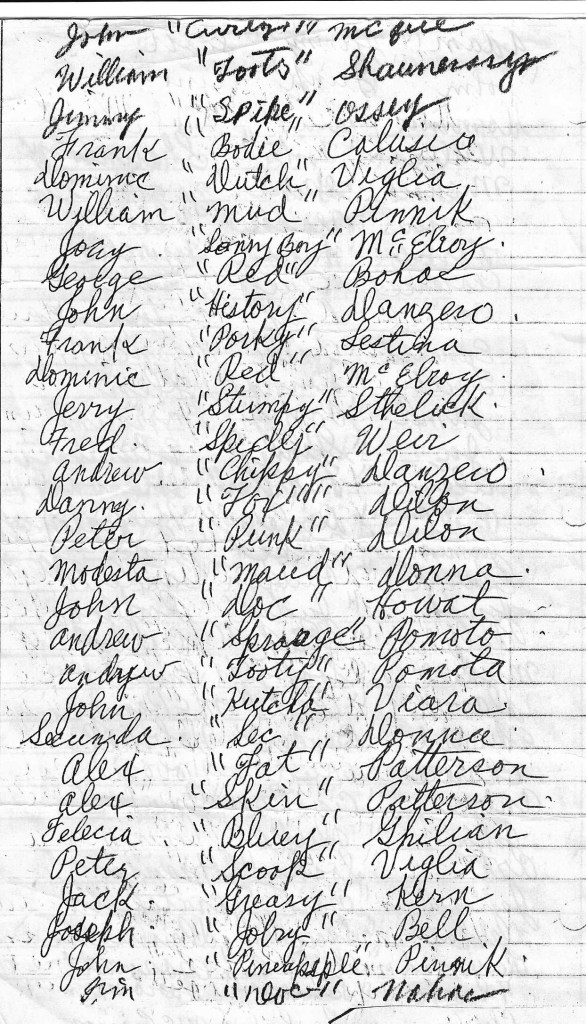 John "Curly" McGee
William "Toots" Shaunessy
Jimmy "Spike" Ossey
Frank "Bodie" Calusice
Dominic "Dutch" Viglia
William "Mud" Pinnik
Joey "Sonny Boy" McElroy.
George "Red" Bohac
John "History" Danzero.
Frank "Porky" Sestina
Dominic "Red" McElroy.
Jerry "Stumpy" Sthelick.
Fred. "Speedy" Weir
Andrew. "Chippy" Danzero.
Danny. "Foy" Dilon
Peter "Punk" Dilon
Modesta "Maud" Donna.
John "Doc" Howat
Andrew "Spraage" Pomoto.
Andrew "Tooty" Pomota
John "Kutcha" Viara
Secunda. "Sec" Donna
Alex "Fat" Patterson
Alex "Skin" Patterson.
Felecia "Bluey" Ghilian
Peter "Scoop" Viglia
Jack. "Greasy" Kern
Joseph "Jobry" Bell
John "Pineapple" Pinnik.
"Doc"